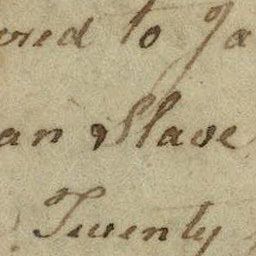 ered to Ja
an Slave
Twenty